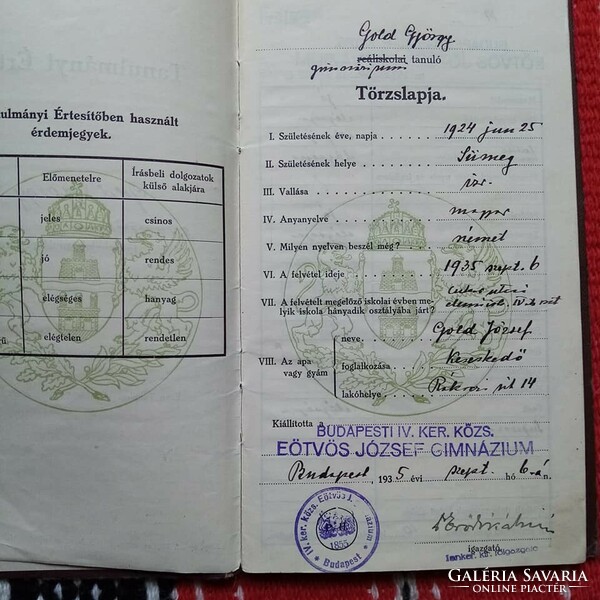 Tanulmányi Ért
ulmányi Értesítőben használt
érdemjegyek.
Előmenetelre
Írásbeli dolgozatok
külső alakjára
jeles
csinos
jó
rendes
elégséges
hanyag
elégtelen
rendetlen
Gold György
reáliskolai tanuló
gimnáziumi
Törzslapja.
I. Születésének éve, napja 1924 jun 25
II. Születésének helye Sümeg
III. Vallása izr.
IV. Anyanyelve magyar
V. Milyen nyelven beszél még? német
VI. A felvétel ideje 1935 szept. 6
VII. A felvételt megelőző iskolai évben melyik iskola hányadik osztályába járt? elemi IV. b.
neve Gold József
VIII. Az apa vagy gyám
foglalkozása kereskedő
lakóhelye Rákóczi út 14
Kiállította a
BUDAPESTI IV. KER. KÖZS.
EÖTVÖS JÓZSEF GIMNÁZIUM
Budapest, 1935 évi szept. hó 6-án.
IV. ker. közs. Eötvös J.
1855
Budapest
igazgató
GALÉRIA SAVARIA
ONLINE PIACTÉR